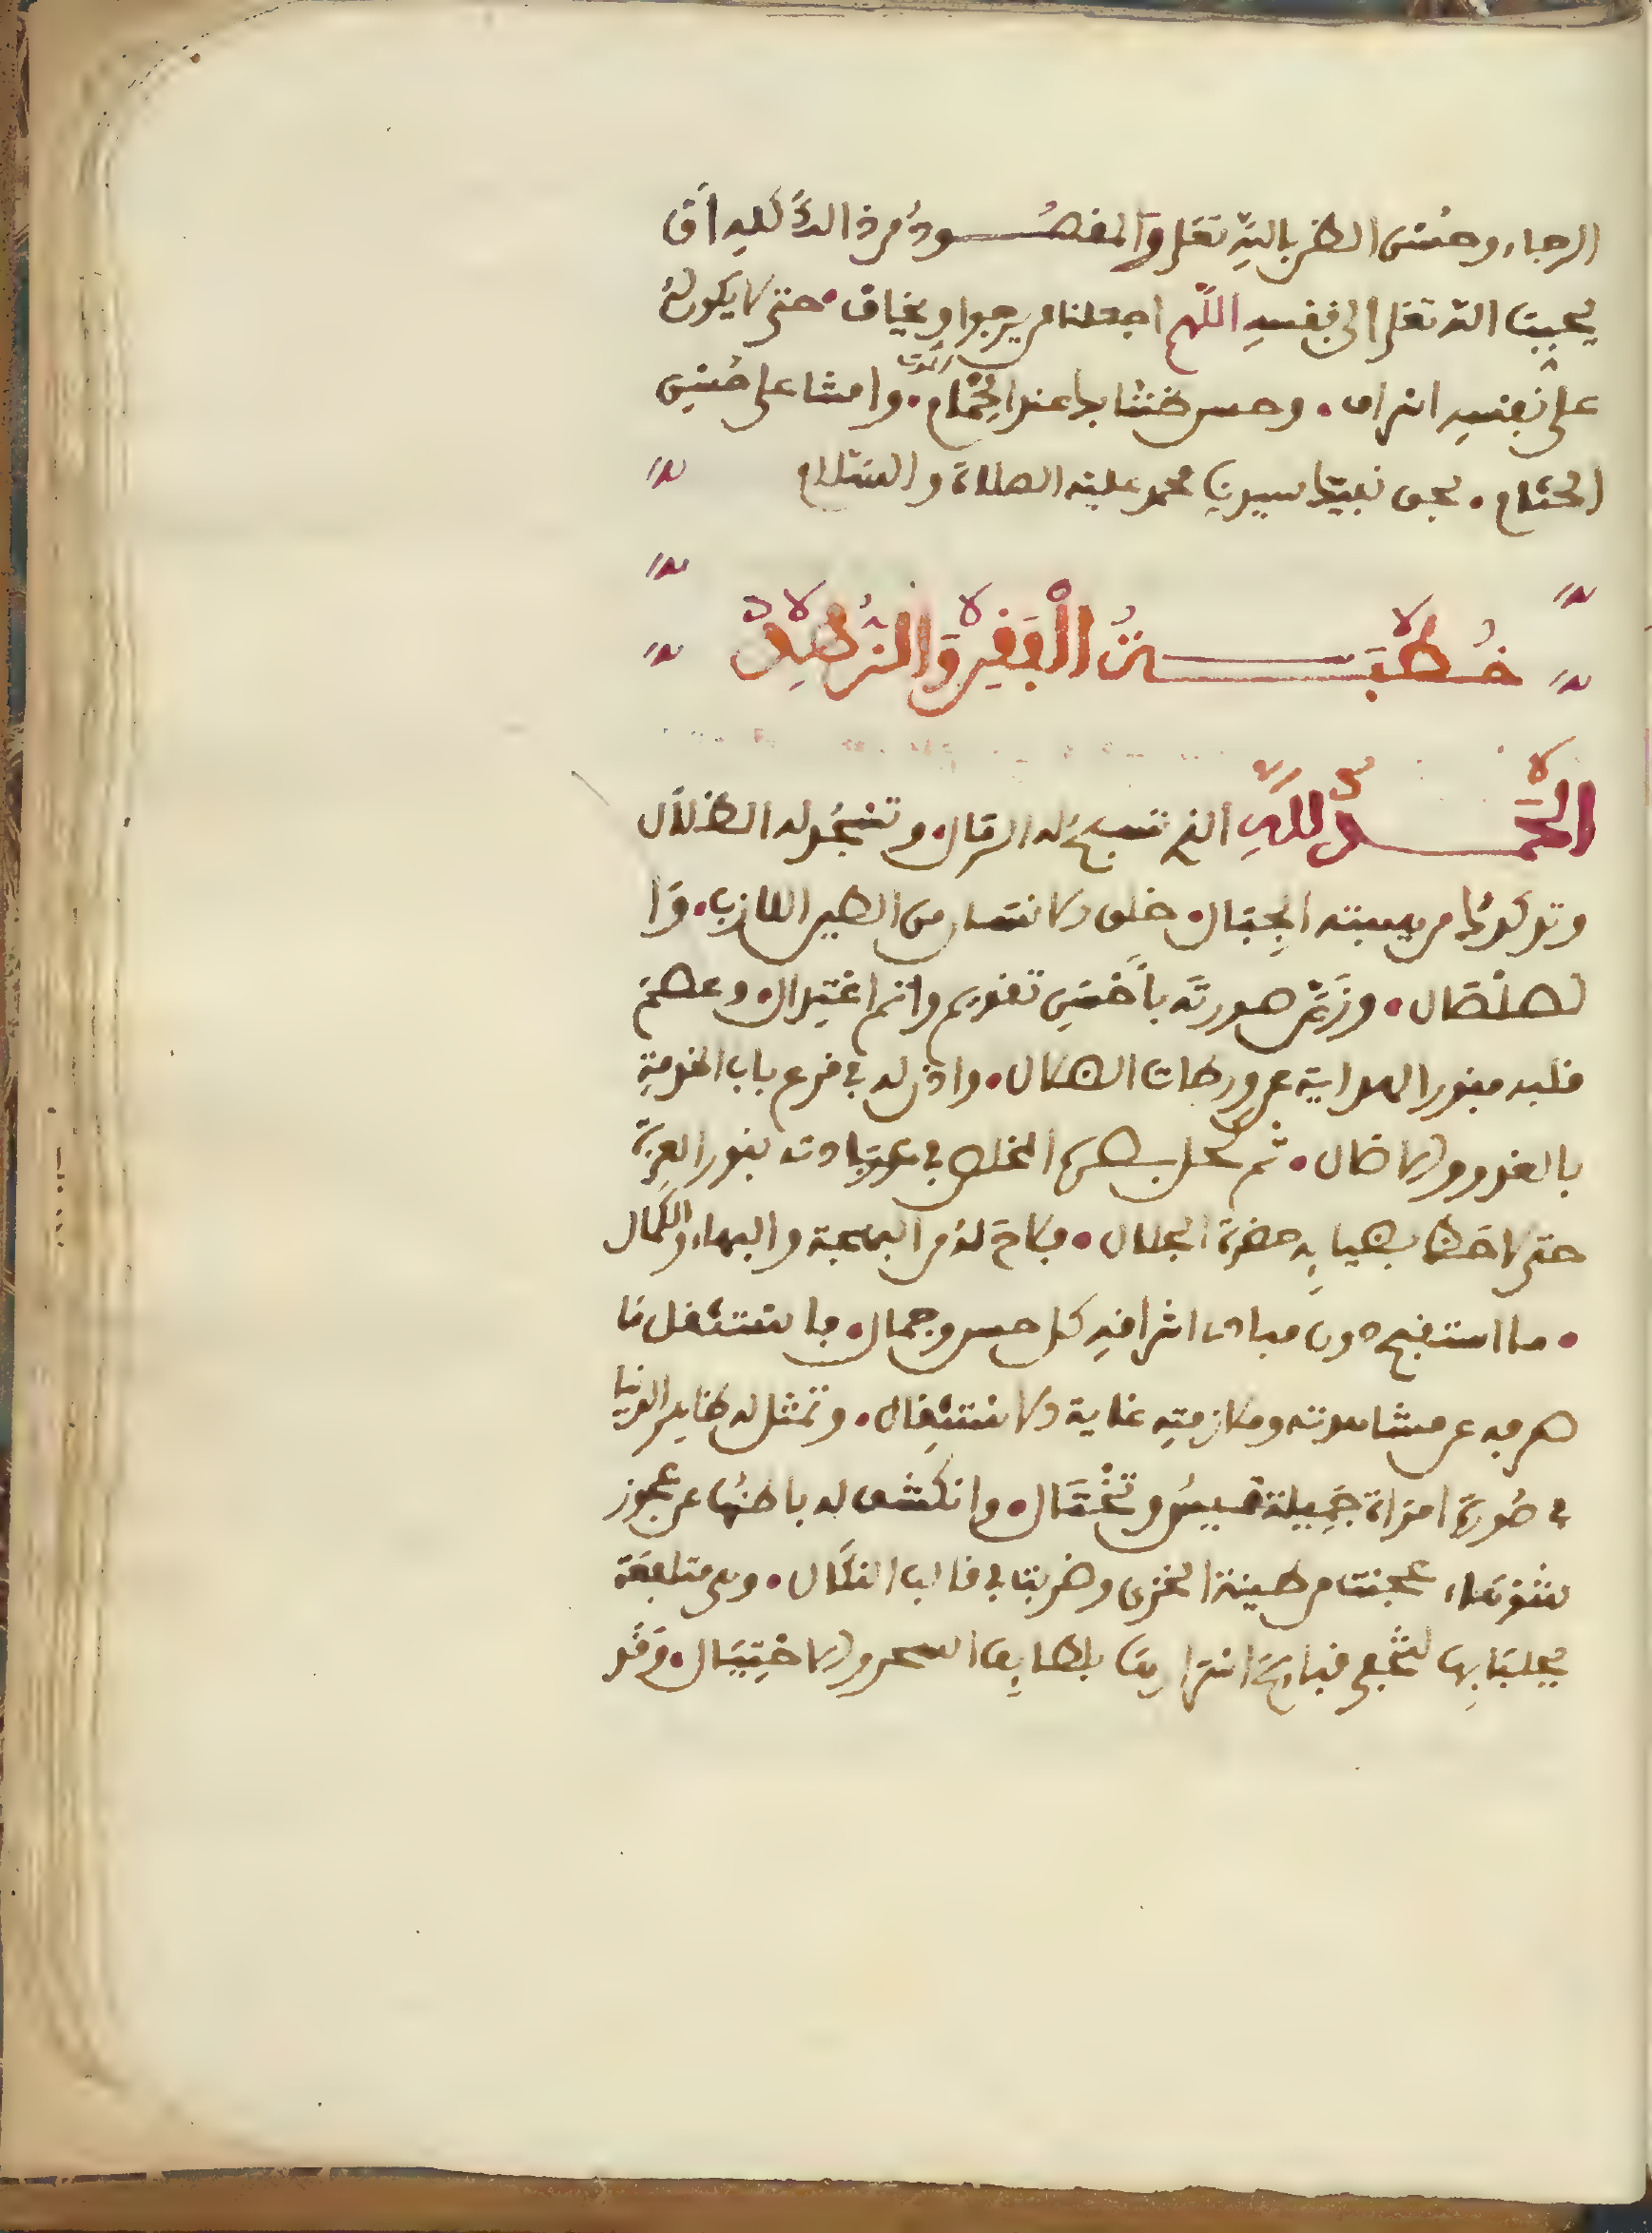 الرجاء وحسن الظن بالله تعلى والمقصود من ذالك كله ان
يحبب الله تعلى الى نفسه اللهم اجعلنا من يرجوا ويخاف حتى لا يكون له
على نفسه انراف . وحسن خشنا بدا عند الحمام الموت . وامشا على حسن
الختام . بجى نبينا سيدنا محمد عليه الصلاة والسلام
خطبة الفقر والزهد
الحمد لله الذي تسبح له الرمال وتسجد له الظلال
وتدكدك من هيبته الجبال خلق الانسان من الطين اللازب . وا
لصلصال . وزين صورته باحسن تقويم واتم اعتدال وعصم
قلبه بنور الهداية عن ورطات الضلال . واذن له في قرع باب الخدمة
بالغدو والاصال . ثم كحل بصيرة المخلص في عبادته بنور العبرة
حتى لاحظ بضيايه حضرة الجلال . فلاح له من البهجة والبهاء والكمال
. ما استقبح دون مبادى اشراقه كل حسن وجمال . فاستثقل ما
صرفه عن مشاهدته وملازمته غاية الاستثقال . وتمثل له ظاهر الدنيا
في صورة امراة جميلة تميس وتختال . وانكشف له باطنها عن عجوز
شوهاء عجنت من طينة الخزى وضربت في قالب النكال . وهى متلففة
بجلبابها لتخفى قبايح اسرارها بلطايف السحر والاحتيال . وقد